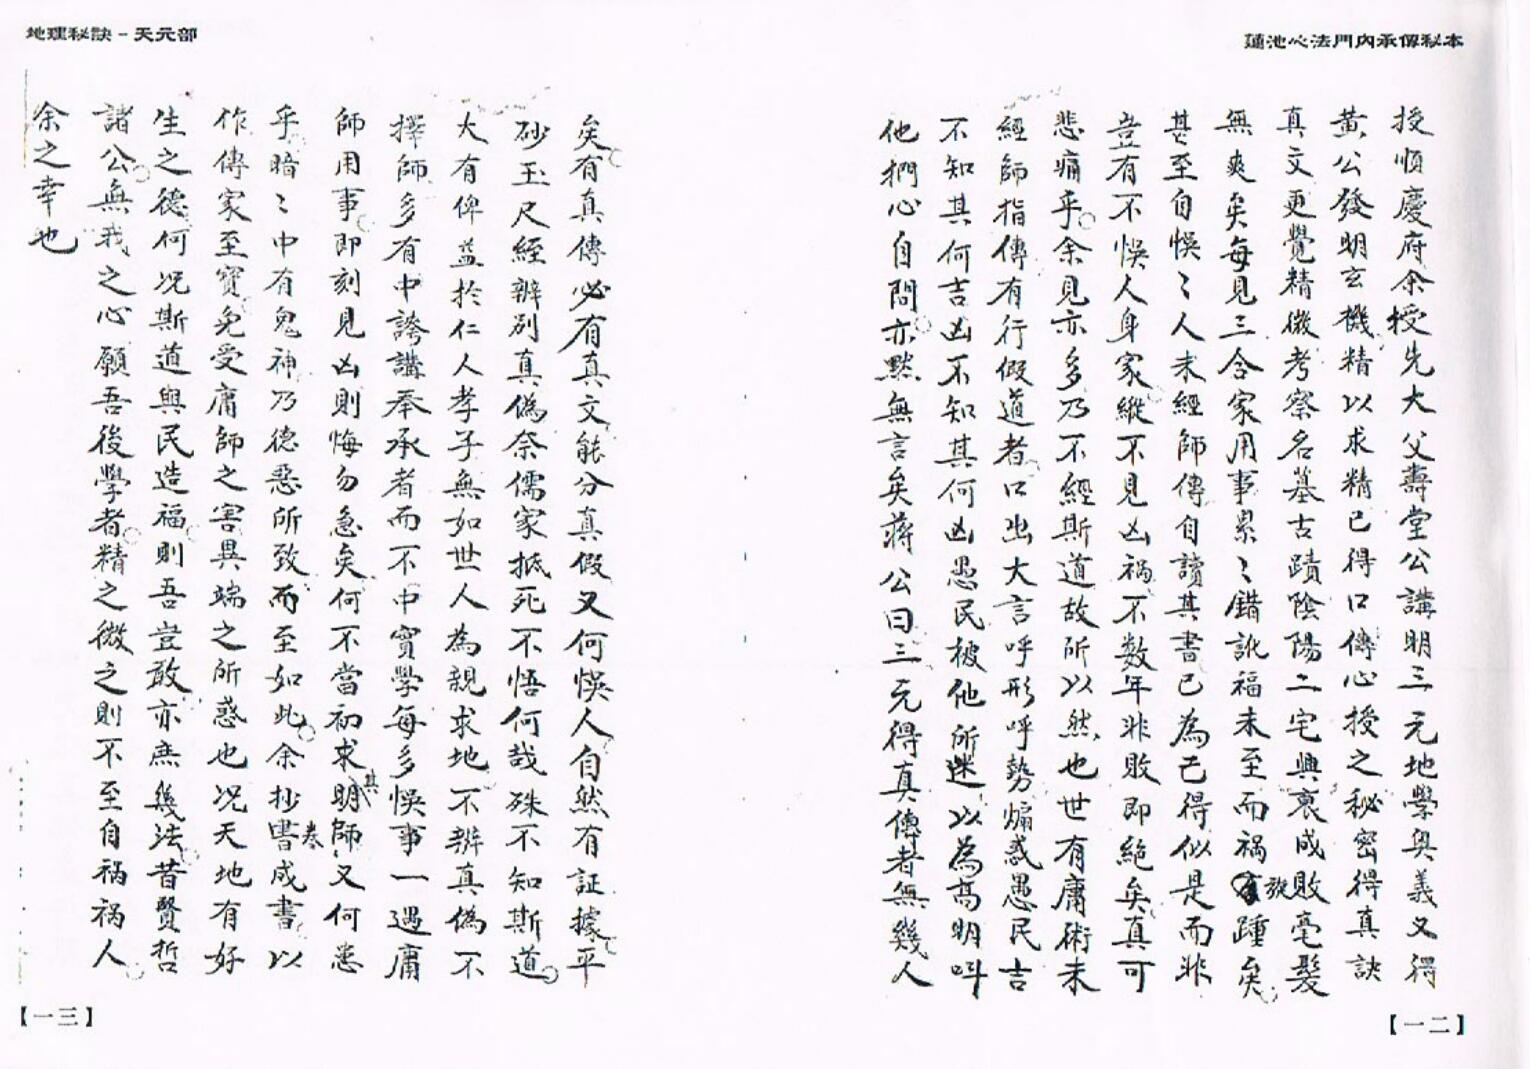 蓮池心法門內承傳秘本
授順慶府余授先大父壽堂公講明三元地學奥義又得
黃公發明玄機精以求精已得口傳心授之秘密得真訣
真文更覺精微考察名墓古蹟陰陽二宅興衰成敗毫髮
無爽矣每見三合家用事累〻錯訛福未至而禍旋踵矣
甚至自悞〻人未經師傳自讀其書已為己得似是而非
豈有不悞人身家縱不見凶禍不数年非敗即絕矣真可
悲痛乎余見亦多乃不經斯道故所以然也世有庸術未
經師指傳有行假道者口出大言呼形呼勢煽惑愚民吉
不知其何吉凶不知其何凶愚民被他所迷以為高明叫
他捫心自問亦黙無言矣蔣公曰三元得真傳者無幾人
【一二】
地理秘訣-天元部
矣有真傳必有真文能分真假又何悞人自然有証據平
砂玉尺經辨别真偽奈儒家抵死不悟何哉殊不知斯道
大有俾益於仁人孝子無如世人為親求地不辨真偽不
擇師多有中誇講奉承者而不中實學每多悞事一遇庸
師用事即刻見凶則悔勿急矣何不當初求其明師又何悉
乎暗〻中有鬼神乃德惡所致而至如此余抄書卷成書以
作傳家至寶免受庸師之害異端之所惑也况天地有好
生之德何况斯道與民造福則吾豈敢亦庶幾法昔賢哲
諸公無我之心願吾後學者精之微之則不至自禍禍人
余之幸也
【一三】